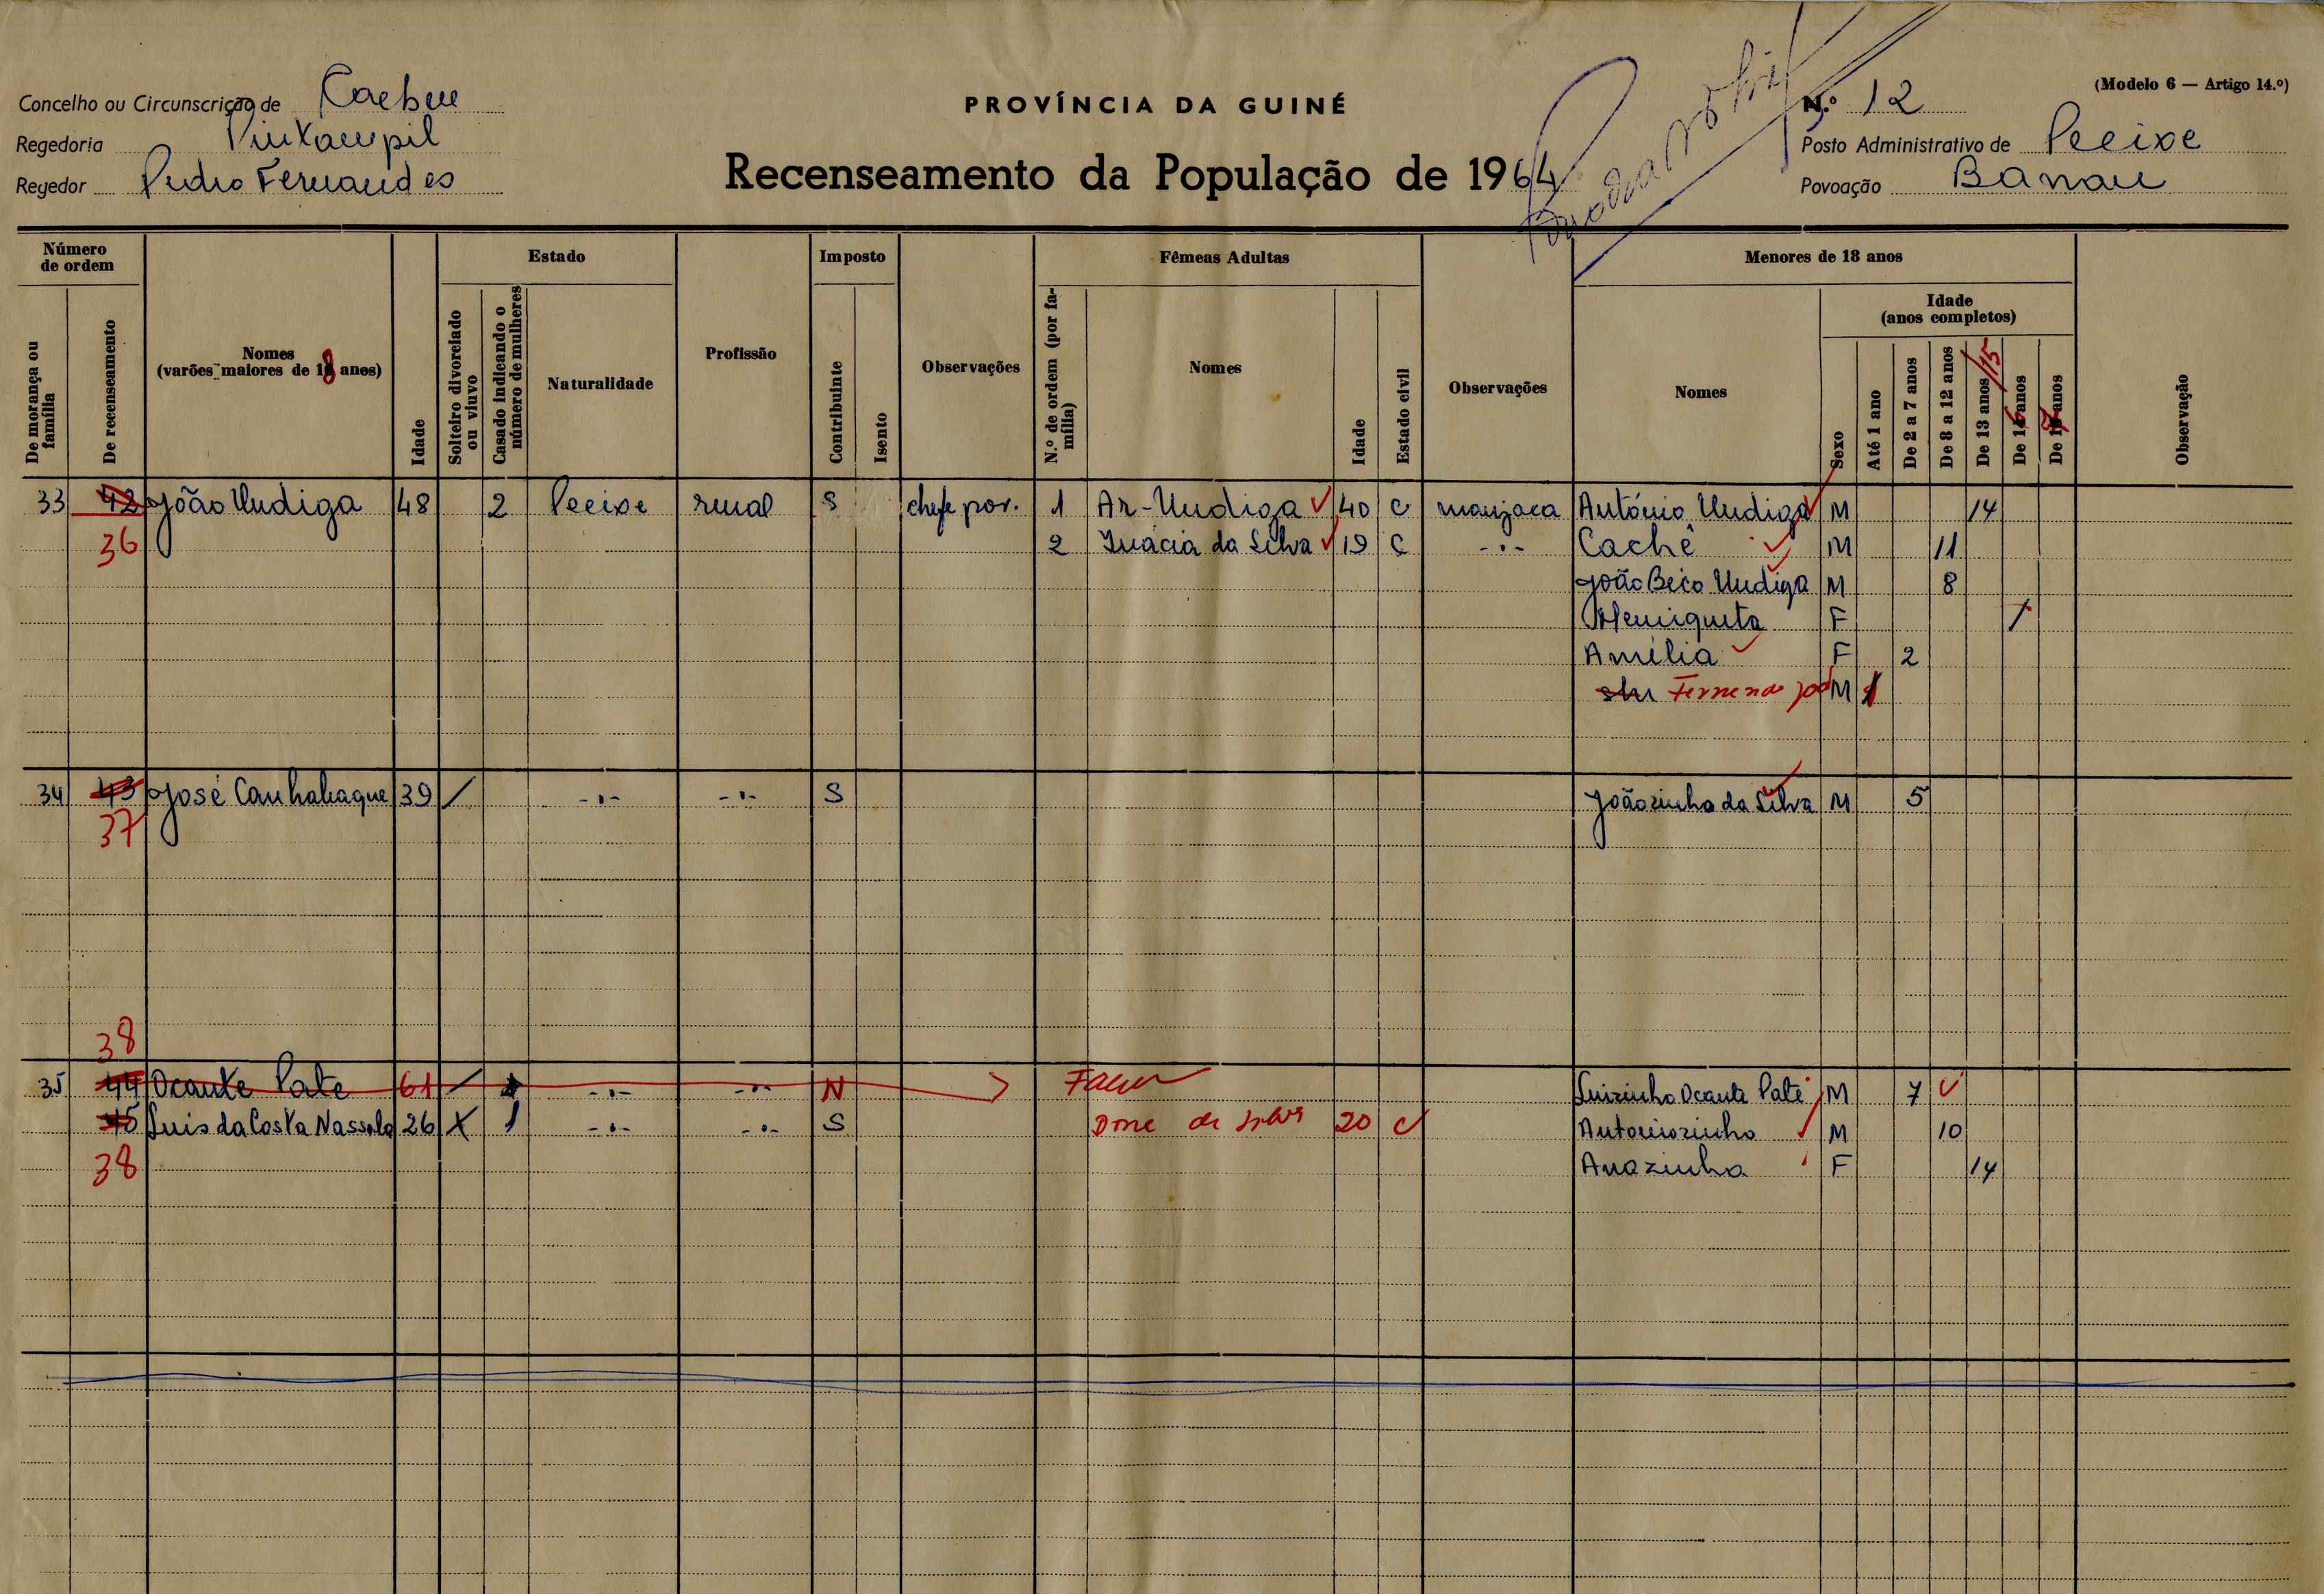 Concelho ou Circunscrição de Caebeu
Regedoria Pintampil
Regedor Pedro Fernandes
PROVÍNCIA DA GUINÉ
Recenseamento da População de 1964
(Modelo 6 — Artigo 14.º)
N.º 12
Posto Administrativo de Pecixe
Povoação Banau
Número de ordem
De morança ou família
De recenseamento
Nomes (varões maiores de 18 anos)
Idade
Estado
Solteiro divorciado ou viuvo
Casado indicando o número de mulheres
Naturalidade
Profissão
Imposto
Contribuinte
Isento
Observações
Fêmeas Adultas
N.º de ordem (por família)
Nomes
Idade
Estado civil
Observações
Menores de 18 anos
Nomes
Sexo
Idade (anos completos)
Até 1 ano
De 2 a 7 anos
De 8 a 12 anos
De 13 anos /15
De 16 anos
De 17 anos
Observação
33 42 João Undiga 48 2 Pecixe rural S chefe pov. 1 Ar-Undiga 40 C manjaca António Undiga M 14
36 2 Inácia da Silva 19 C -"- Caché M 11
João Beco Undiga M 8
Henriqueta F 1
Amélia F 2
Fernando João M 1
34 43 José Canhabaque 39 / -"- -"- S Joãozinho da Silva M 5
37
38
35 44 Ocante Pate 61 / -"- -"- N Luizinho Ocante Paté M 7
45 Luis da Costa Nassola 26 X 1 -"- -"- S da Silva 20 C Antoniozinho M 10
38 Anazinha F 14